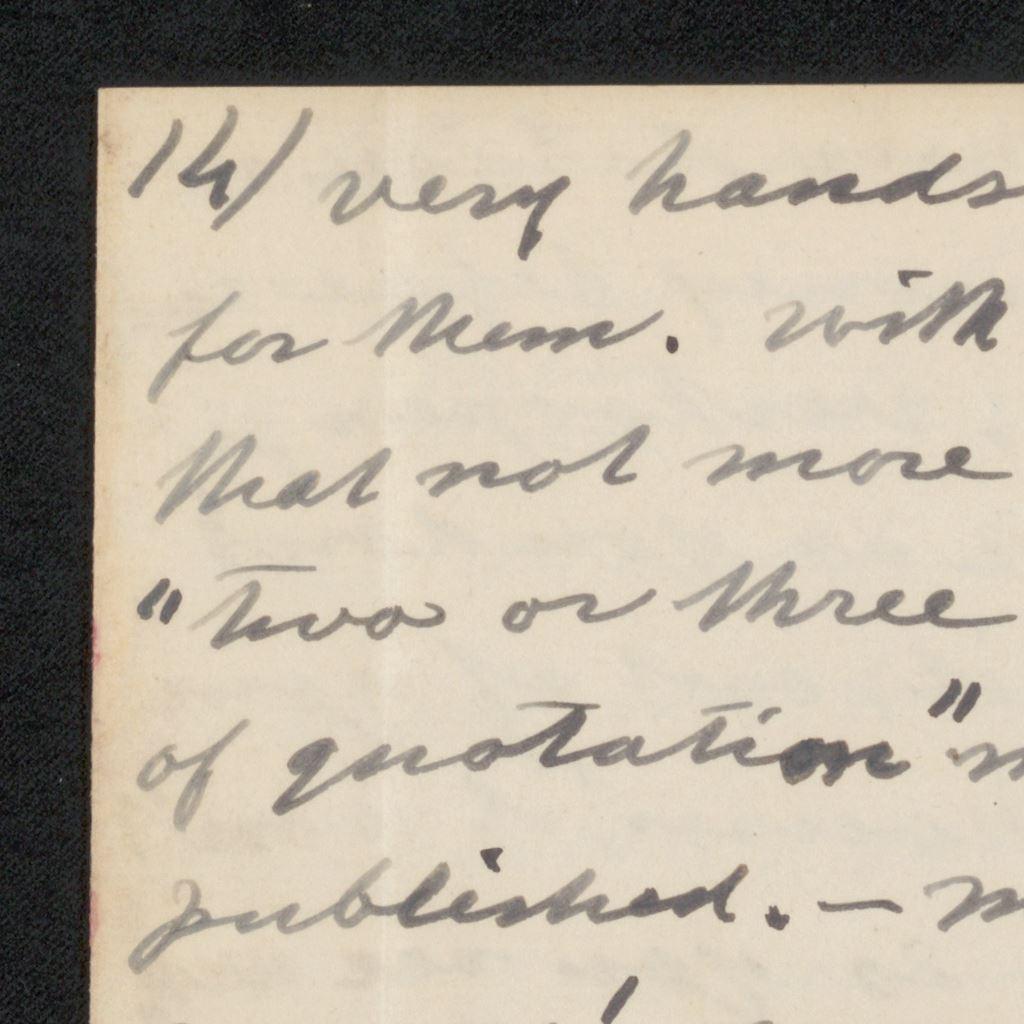 14) very hands
for them. With
that not more
"two or three
of quotation" m
published. — m